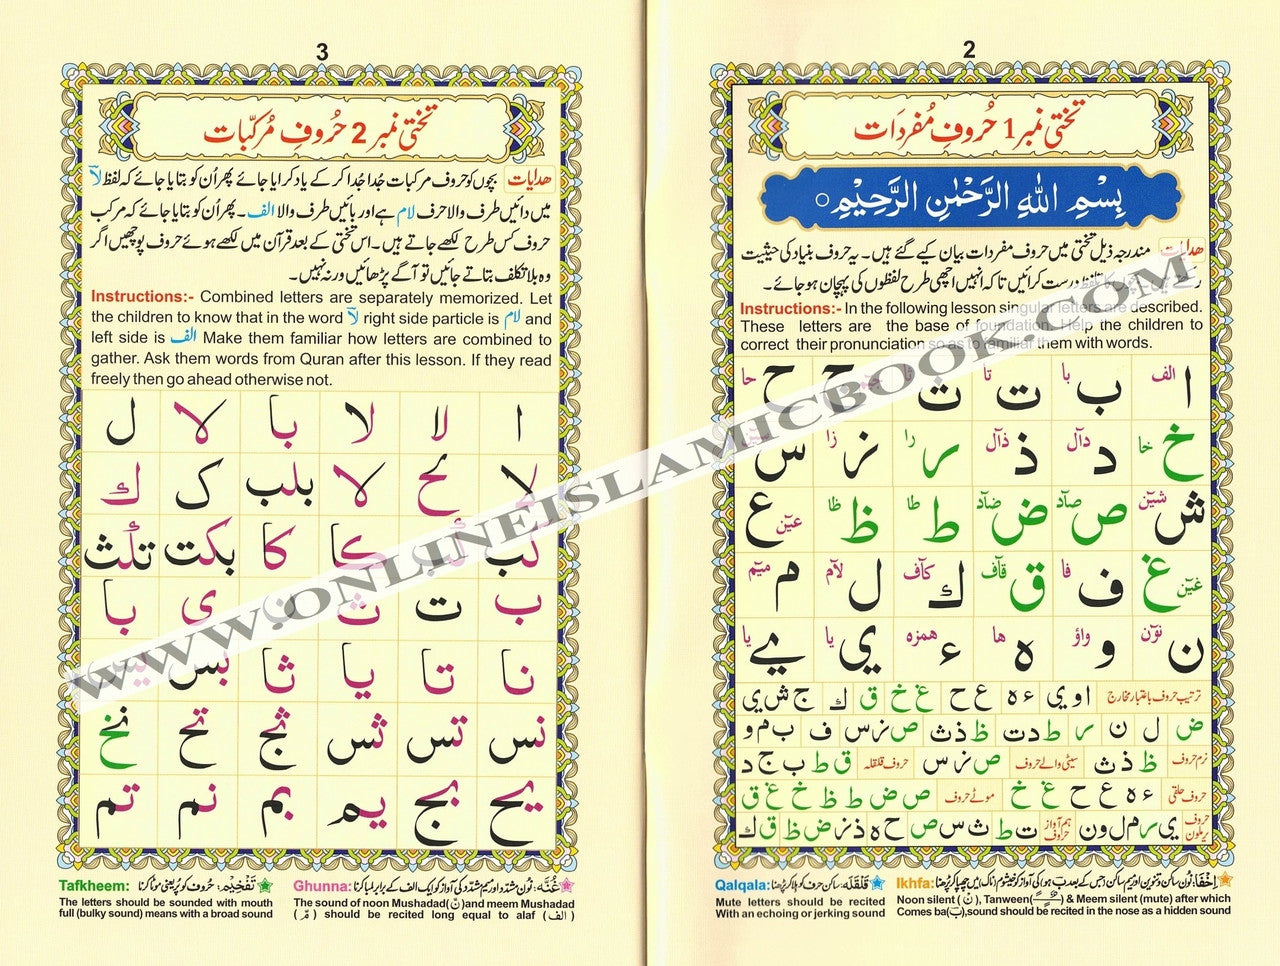 2
تختی نمبر 1 حُروفِ مُفرَدَات
بِسْمِ اللهِ الرَّحْمٰنِ الرَّحِيْمِ
هدايات مندرجہ ذیل تختی میں حروف مفردات بیان کیے گئے ہیں۔ یہ حروف بنیاد کی حیثیت
تلفظ درست کرائیں تاکہ انہیں اچھی طرح لفظوں کی پہچان ہو جائے۔
Instructions:- In the following lesson singular letters are described.
These letters are the base of foundation. Help the children to
correct their pronunciation so as to familiar them with words.
ا الف ب با ت تا ث ح حا
خ خا د دآل ذ ذآل ر را ز زا س
ش شین ص صآد ض ضآد ط طا ظ ظا ع عین
غ غین ف فا ق قآف ك كآف ل لآم م میٓم
ن نوٓن و واؤ ه ها ء همزه ي يا ے يا
ترتیب حروف باعتبار مخارج ا و ي ء ه ع ح غ خ ق ك ج ش ي
ض ل ن ر ط د ت ظ ذ ث ص ز س ف ب م و
نرم حروف ظ ذ ث سیٹی والے حروف ص ز س حروف قلقلہ ق ط ب ج د
حروف حلقی ء ه ع ح غ خ موٹے حروف ص ض ط ظ خ غ ق
حروف یرملون ي ر م ل و ن ہم آواز حروف ت ط ث س ص ح ه ذ ز ض ظ ق ك
Qalqala: قَلْقَلَه: ساکن حرف کو ہلا کر پڑھنا
Mute letters should be recited
With an echoing or jerking sound
Ikhfa: اِخْفَا: نُون ساکن و تنوین اور میم ساکن (جس کے بعد ب ہو) کی آواز کو خیشوم (ناک) میں چھپا کر پڑھنا
Noon silent (نْ), Tanween( ) & Meem silent (mute) after which
Comes ba(ب),sound should be recited in the nose as a hidden sound
3
تختی نمبر 2 حُروفِ مُرکّبات
هدايات بچوں کو حروف مرکبات جُدا جُدا کر کے یاد کرایا جائے پھر اُن کو بتایا جائے کہ لفظ لآ
میں دائیں طرف والا حرف لام ہے اور بائیں طرف والا الف ۔ پھر اُن کو بتایا جائے کہ مرکب
حروف کس طرح لکھے جاتے ہیں۔ اس تختی کے بعد قرآن میں لکھے ہوئے حروف پوچھیں اگر
وہ بلا تکلف بتاتے جائیں تو آگے پڑھائیں ورنہ نہیں۔
Instructions:- Combined letters are separately memorized. Let
the children to know that in the word لآ right side particle is لام and
left side is الف Make them familiar how letters are combined to
gather. Ask them words from Quran after this lesson. If they read
freely then go ahead otherwise not.
ا لا لا با لا ل
لا لح لا بلب ک ك
لب كا كا بكت تلث
ب ت ث ى با
نا تا يا ثا بس
نس تس ثس ثج تح نخ
يح بج يم بم نم تم
Tafkheem: تَفْخِيْم: حُروف کو پُر یعنی موٹا کرنا
The letters should be sounded with mouth
full (bulky sound) means with a broad sound
Ghunna: غُنَّه: نُون مشدّد اور میم مشدّد کی آواز کو ایک الف کے برابر لمبا کرنا
The sound of noon Mushadad(نّ)and meem Mushadad
(مّ) should be recited long equal to alaf (الف)
WWW.ONLINEISLAMICBOOK.COM